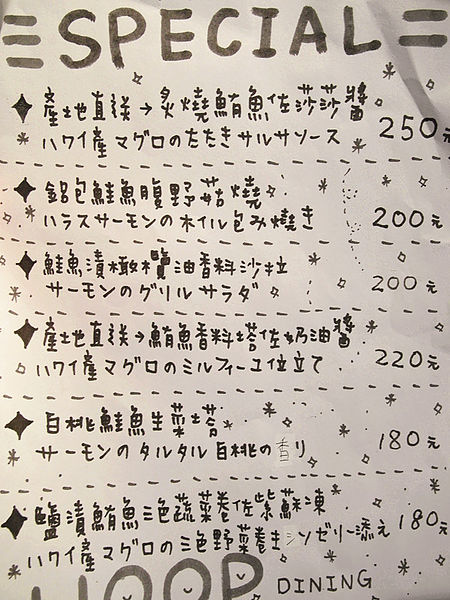 SPECIAL
產地直送→炙燒鮪魚佐莎莎醬
ハワイ產マグロのたたきサルサソース 250元
鋁包鮭魚腹野菇燒
ハラスサーモンのホイル包み燒き 200元
鮭魚漬橄欖油香料沙拉
サーモンのグリルサラダ 200元
產地直送→鮪魚香料塔佐奶油醬
ハワイ產マグロのミルフィーユ仕立て 220元
白桃鮭魚生菜塔
サーモンのタルタル白桃の香り 180元
鹽漬鮪魚三色蔬菜卷佐紫蘇凍
ハワイ產マグロの三色野菜卷き ンゼリー添え 180元
HOOP DINING